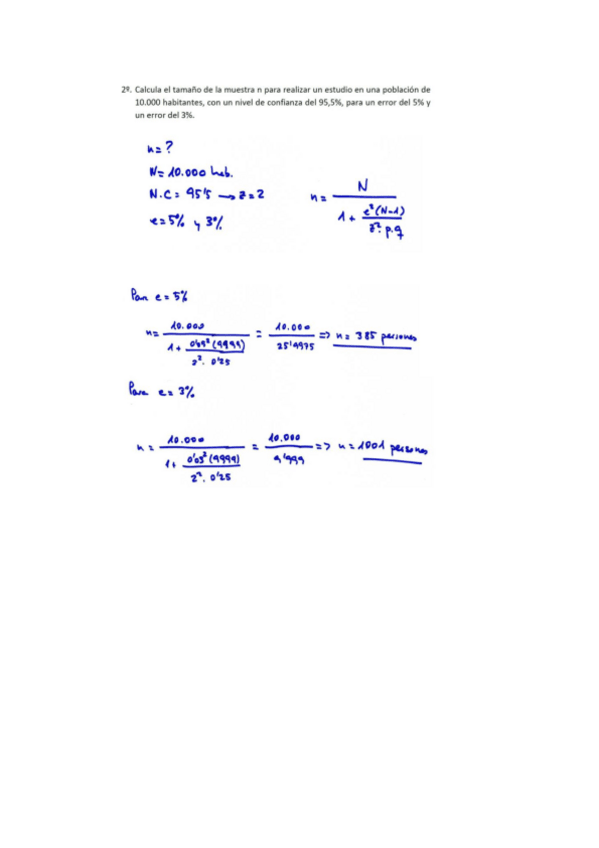 2º. Calcula el tamaño de la muestra n para realizar un estudio en una población de
10.000 habitantes, con un nivel de confianza del 95,5%, para un error del 5% y
un error del 3%.
n=?
N= 10.000 hab.
N.C= 95'5 → z=2
e=5% y 3%
n= N / 1+ e²(N-1) / z². p.q
Para e=5%
n= 10.000 / 1+ 0'05²(9999) / 2². 0'25 = 10.000 / 25'9975 => n= 385 personas
Para e= 3%
n= 10.000 / 1+ 0'03²(9999) / 2². 0'25 = 10.000 / 9'999 => n=1001 personas